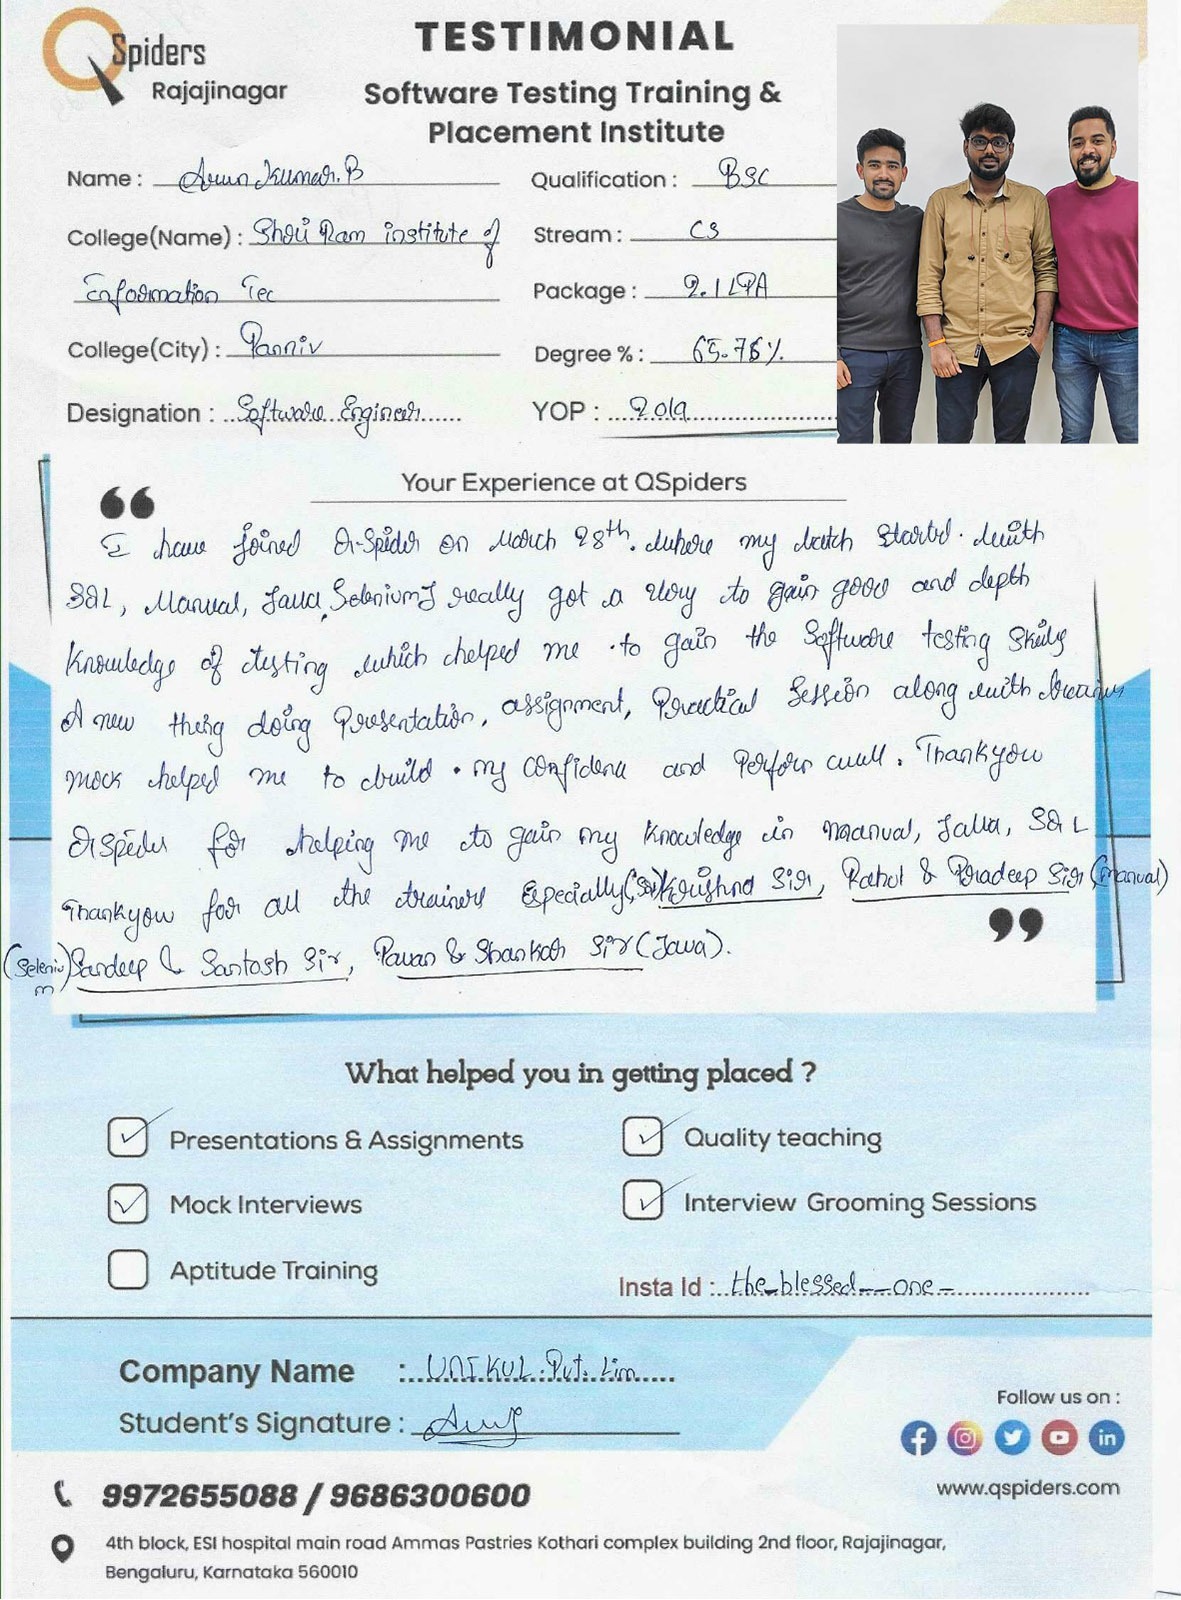 QSpiders
Rajajinagar
TESTIMONIAL
Software Testing Training &
Placement Institute
Name : Arun Kumar. B
Qualification : BSC
College(Name) : Shri Ram institute of
Stream : CS
Information Tec
Package : 2.1 LPA
College(City) :
Degree % : 65.76%
Designation : Software Engineer
YOP : 2019
Your Experience at QSpiders
I have joined Q-Spider on March 28th. where my batch started. with
SQL, Manual, Java, Selenium I really got a way to gain good and depth
Knowledge of testing which helped me to gain the Software testing Skills
A new thing doing Presentation, assignment, Practical Session along with
mock helped me to build my confidence and Perform well. Thankyou
QSpider for helping me to gain my Knowledge in manual, Java, SQL
Thankyou for all the trainers Especially (Sql) Krishna Sir, Rahul & Pradeep Sir (manual)
(Selenium) Sandeep & Santosh Sir, Pavan & Shankar Sir (Java).
What helped you in getting placed ?
Presentations & Assignments
Quality teaching
Mock Interviews
Interview Grooming Sessions
Aptitude Training
Insta Id : the_blessed__one_
Company Name : UNIKUL Pvt. Lim
Student's Signature :
Follow us on :
9972655088 / 9686300600
www.qspiders.com
4th block, ESI hospital main road Ammas Pastries Kothari complex building 2nd floor, Rajajinagar,
Bengaluru, Karnataka 560010